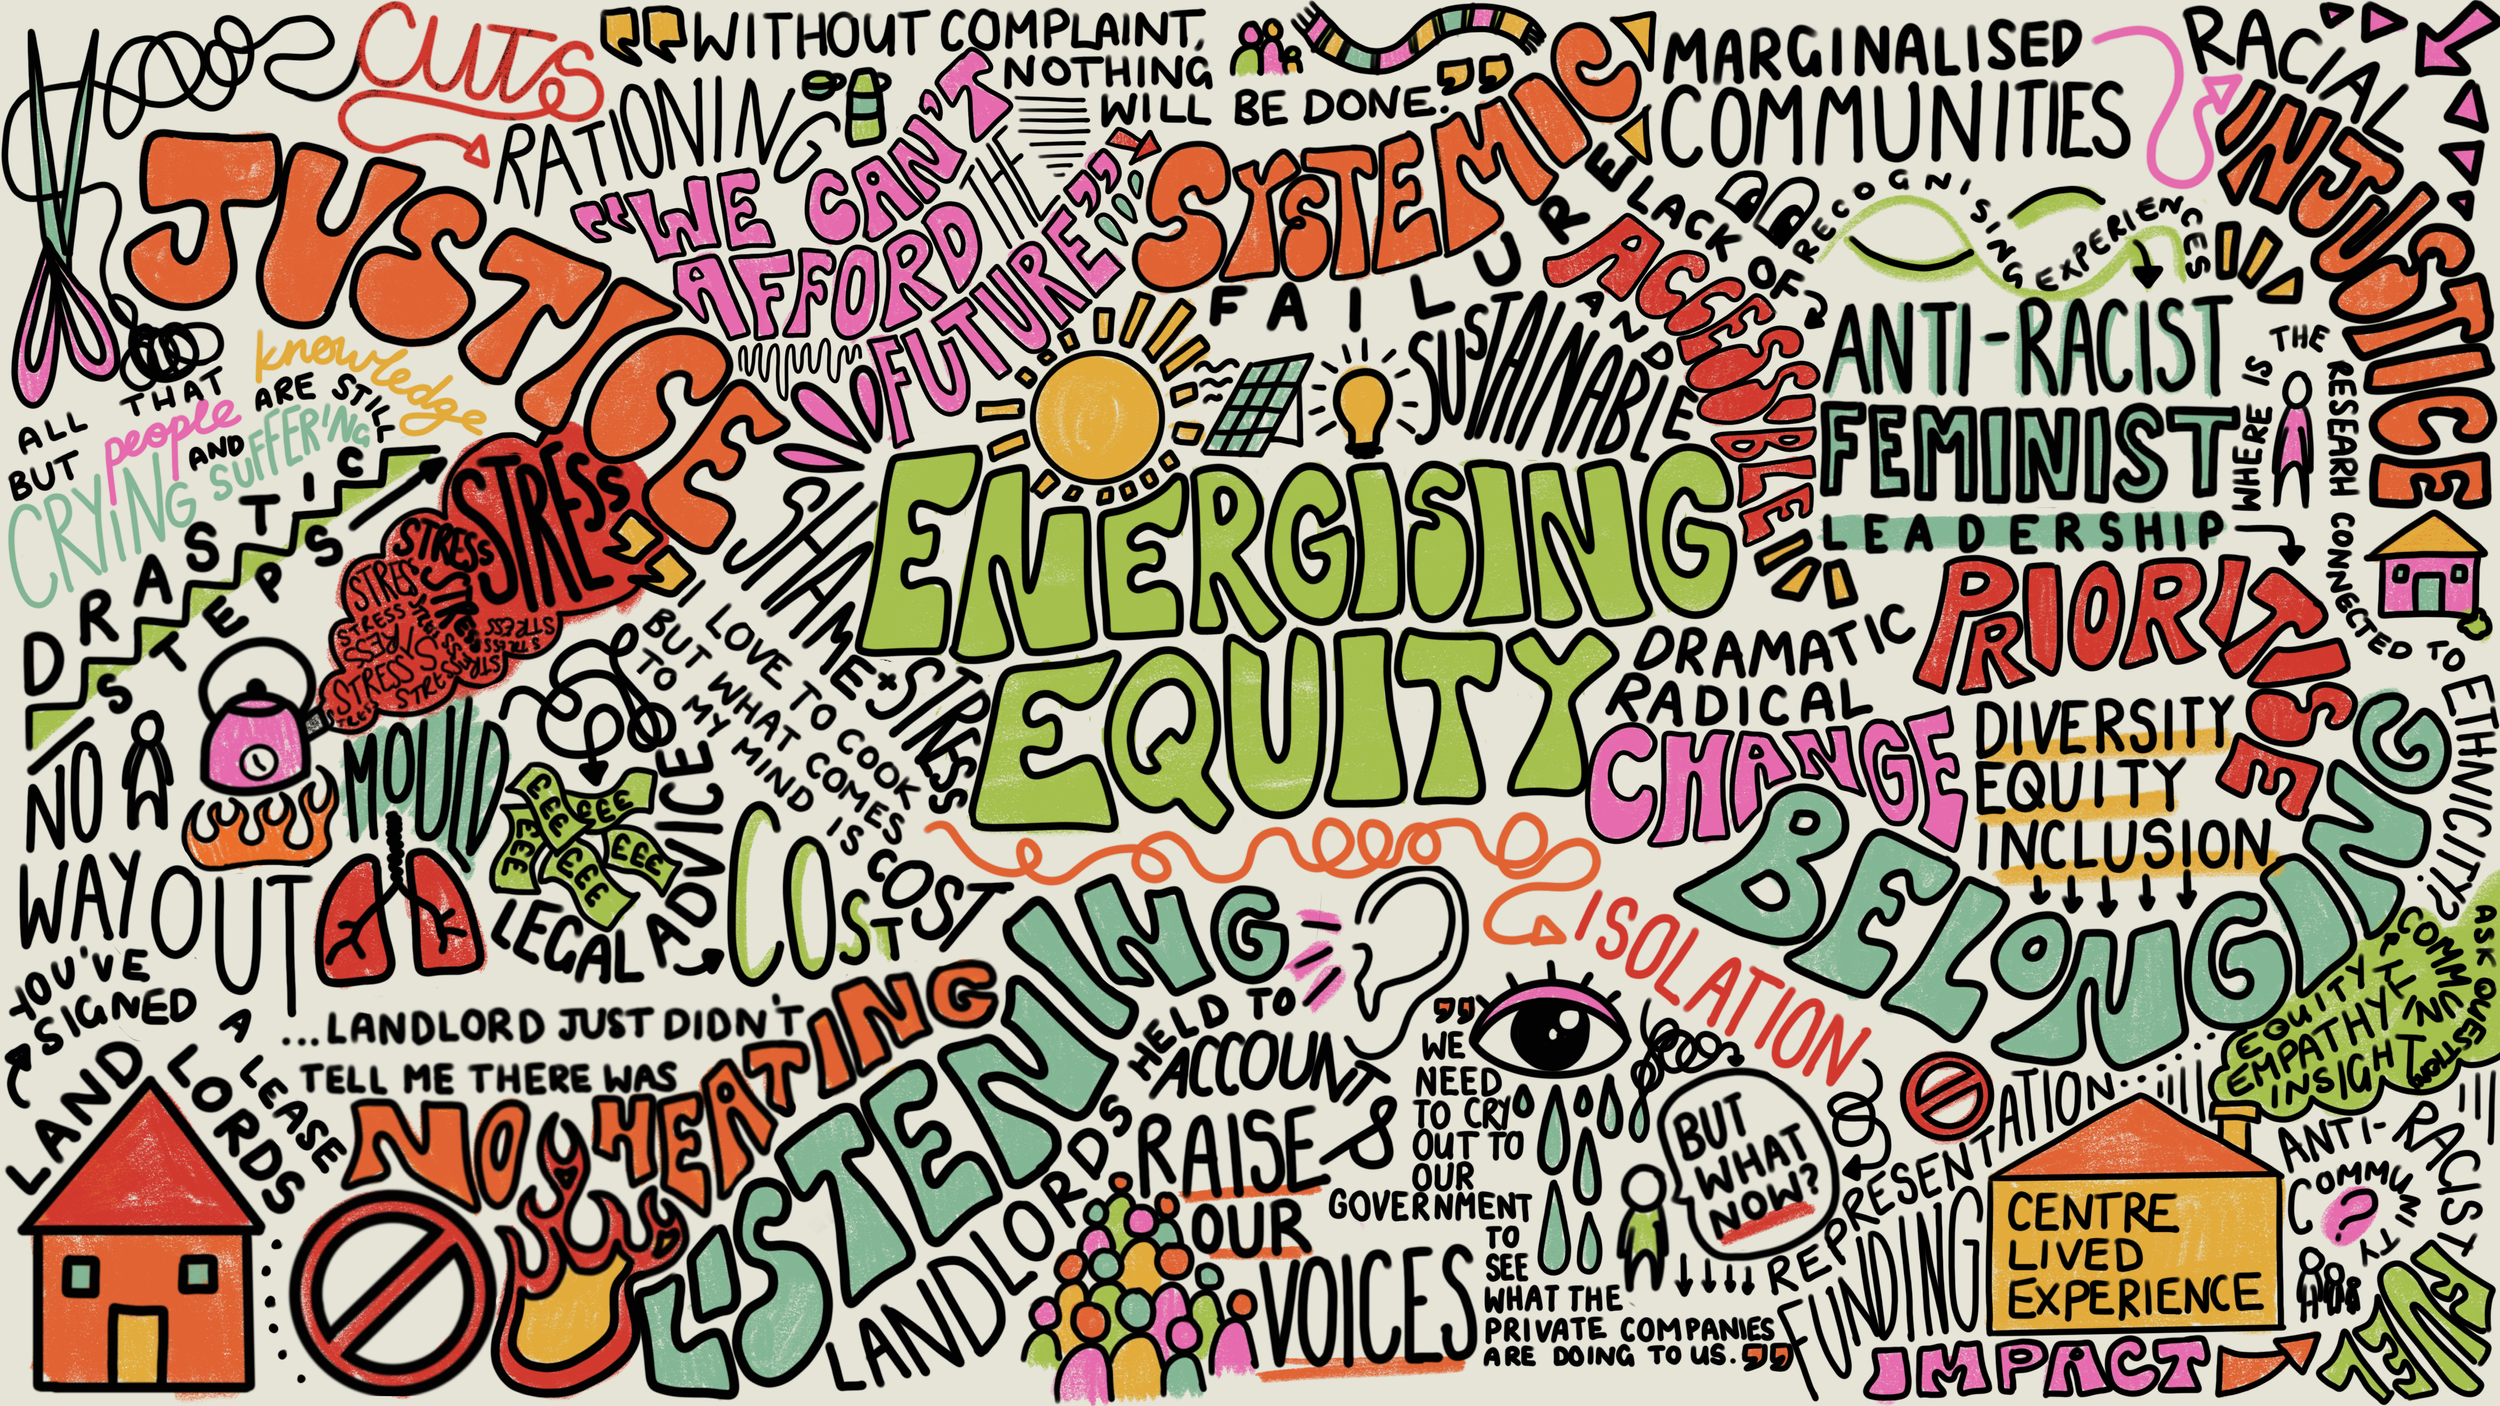 CUTS
RATIONING
"WITHOUT COMPLAINT,
NOTHING
WILL BE DONE."
JUSTICE
"WE CAN'T
AFFORD THE
FUTURE"
SYSTEMIC
FAILURE
MARGINALISED
COMMUNITIES
RACIAL
INJUSTICE
LACK OF
RECOGNISING EXPERIENCES
ANTI-RACIST
FEMINIST
LEADERSHIP
WHERE IS THE RESEARH CONNECTED TO ETHNICITY?
SUSTAINABLE
AND
ACCESSIBLE
ALL THAT knowledge
BUT people ARE STILF
CRYING AND SUFFERING
DRASTIC
STEPS
STRESS
STRESS
STRESS
STRESS
STRESS
STRESS
STRESS
STRESS
STRESS
STRESS
STRESS
STRESS
SHAME + STRESS
"I LOVE TO COOK
BUT WHAT COMES
TO MY MIND IS COST
ENERGISING
EQUITY
DRAMATIC
RADICAL
CHANGE
PRIORITISE
DIVERSITY
EQUITY
INCLUSION
BELONGING
NO
WAY OUT
MOULD
£££
£££
£££
£££
£££
LEGAL ADVICE
COST
YOU'VE
SIGNED
A LEASE
LANDLORDS
...LANDLORD JUST DIDN'T
TELL ME THERE WAS
NO HEATING
LISTENING
HELD TO
ACCOUNT
LANDLORDS
&
RAISE
OUR
VOICES
ISOLATION
"WE
NEED
TO CRY
OUT TO
OUR
GOVERNMENT
TO
SEE
WHAT THE
PRIVATE COMPANIES
ARE DOING TO US."
BUT
WHAT
NOW?
REPRESENTATION
FUNDING
CENTRE
LIVED
EXPERIENCE
IMPACT
EQUITY
EMPATHY
INSIGHT
COMMUNITY
ASK QUESTIONS
ANTI-RACIST
COMMUNITY
?